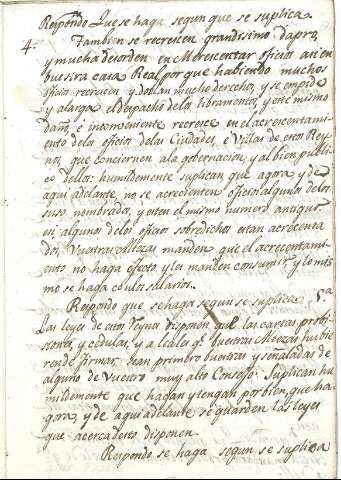 Respondo Que se haga segun que se suplica.
4.a Tambien se recrescen grandisimo dapño,
y mucha desorden en Acrescentar oficios asi en
buestra casa Real porque habiendo muchos
oficios recrescen y doblan mucho derechos, y se empide
y alarga el despacho de los libramentos, y este mismo
daño, è inconveniente recresce en el acrescentami-
ento de los oficios delas Ciudades, è Villas de estos Rey-
nos, que conciernen ala gobernacion, y al bien publi-
co dellos: humildemente suplican que agora y de
aqui adelante, no se acrecienten oficios algunos delos
suso nombrados, y esten el mismo numero antiguo.
en algunos delos oficios sobredichos estan acrecenta
dos, Vuestras Altezas manden que el acrecentami-
ento no haga efecto y les manden consumir, y lo mis
mo se haga conlos salarios.
Respondo que se haga segun se suplica
5.a
Las leyes de estos Reynos disponen que las cartas probi-
siones, y cedulas, y aleales q.e buestras Altezas hubie
ren de firmar, sean primero buestras y señaladas de
alguno de Vuestro muy alto Consejo: Suplican hu
mildemente que hagan y tengan por bien, que ha-
gora, y de aqui adelante se guarden las leyes
que acerca desto disponen.
Respondo se haga segun se suplica